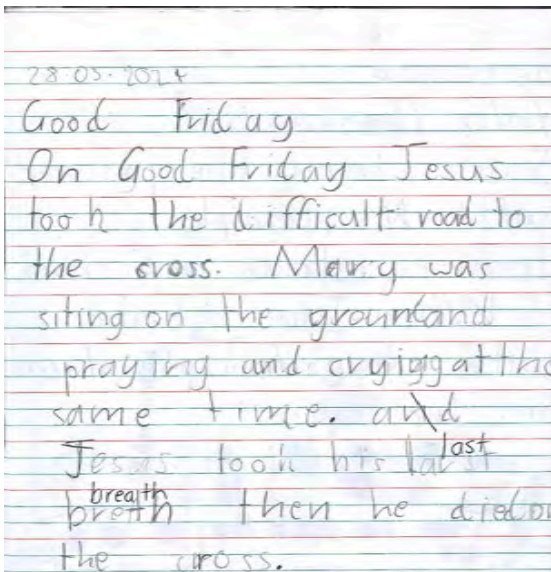 28.03.2024
Good Friday
On Good Friday Jesus
took the difficult road to
the cross. Mary was
siting on the groundand
praying and cryiggatthe
same time. and
Jesus took his last
breath then he diedon
the cross.